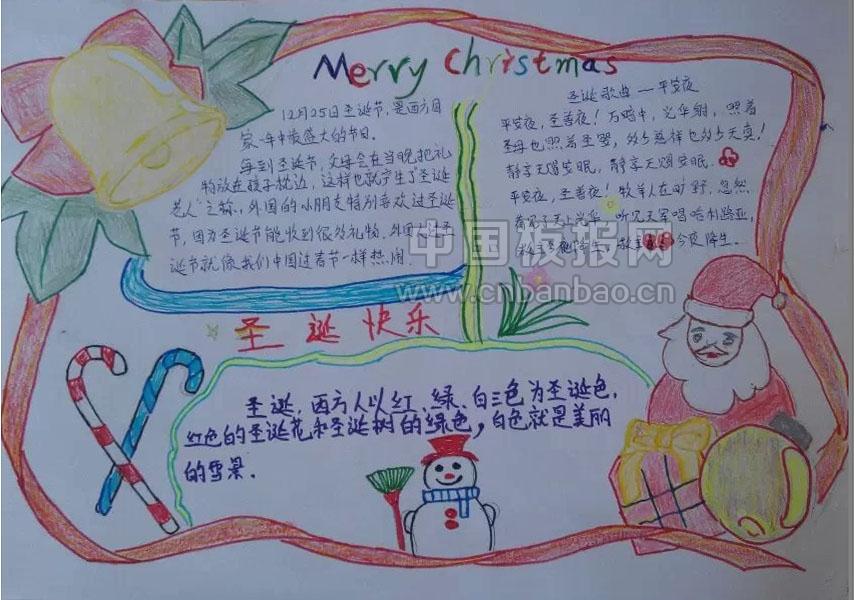 Merry Christmas
12月25日圣诞节,是西方国
家一年中最盛大的节日.
每到圣诞节,父母会在当晚把礼
物放在孩子枕边,这样也就产生了"圣诞
老人"之称,外国的小朋友特别喜欢过圣诞
节,因为圣诞节能收到很多礼物.外国人过圣
诞节就像我们中国过春节一样热闹.
圣诞歌曲—平安夜
平安夜,圣善夜!万暗中,光华射,照着
圣母也照着圣婴,多少慈祥也多少天真!
静享天赐安眠,静享天赐安眠.
平安夜,圣善夜!牧羊人在旷野,忽然
看见了天上光华,听见天军唱哈利路亚,
救主今夜降生.
中国板报网
www.cnbanbao.cn
圣诞快乐
圣诞,西方人以红、绿、白三色为圣诞色,
红色的圣诞花和圣诞树的绿色,白色就是美丽
的雪景.